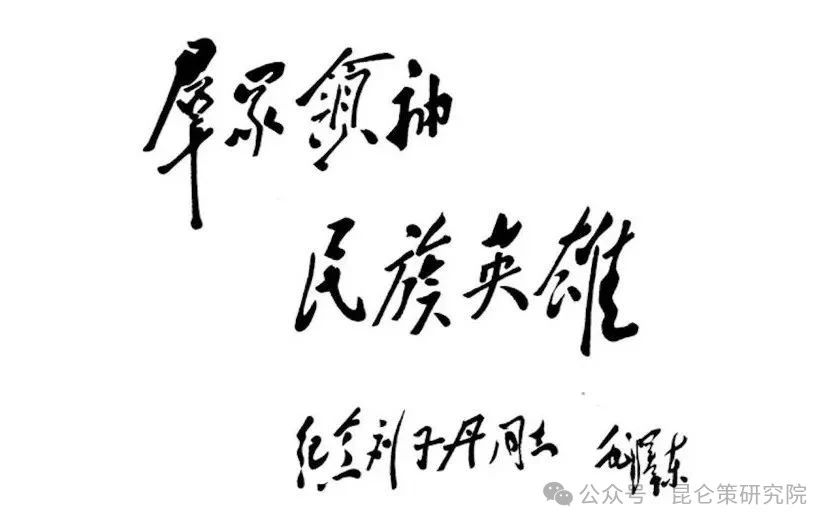 羣眾領袖
民族英雄
纪念刘子丹同志 毛泽东
公众号·昆仑策研究院